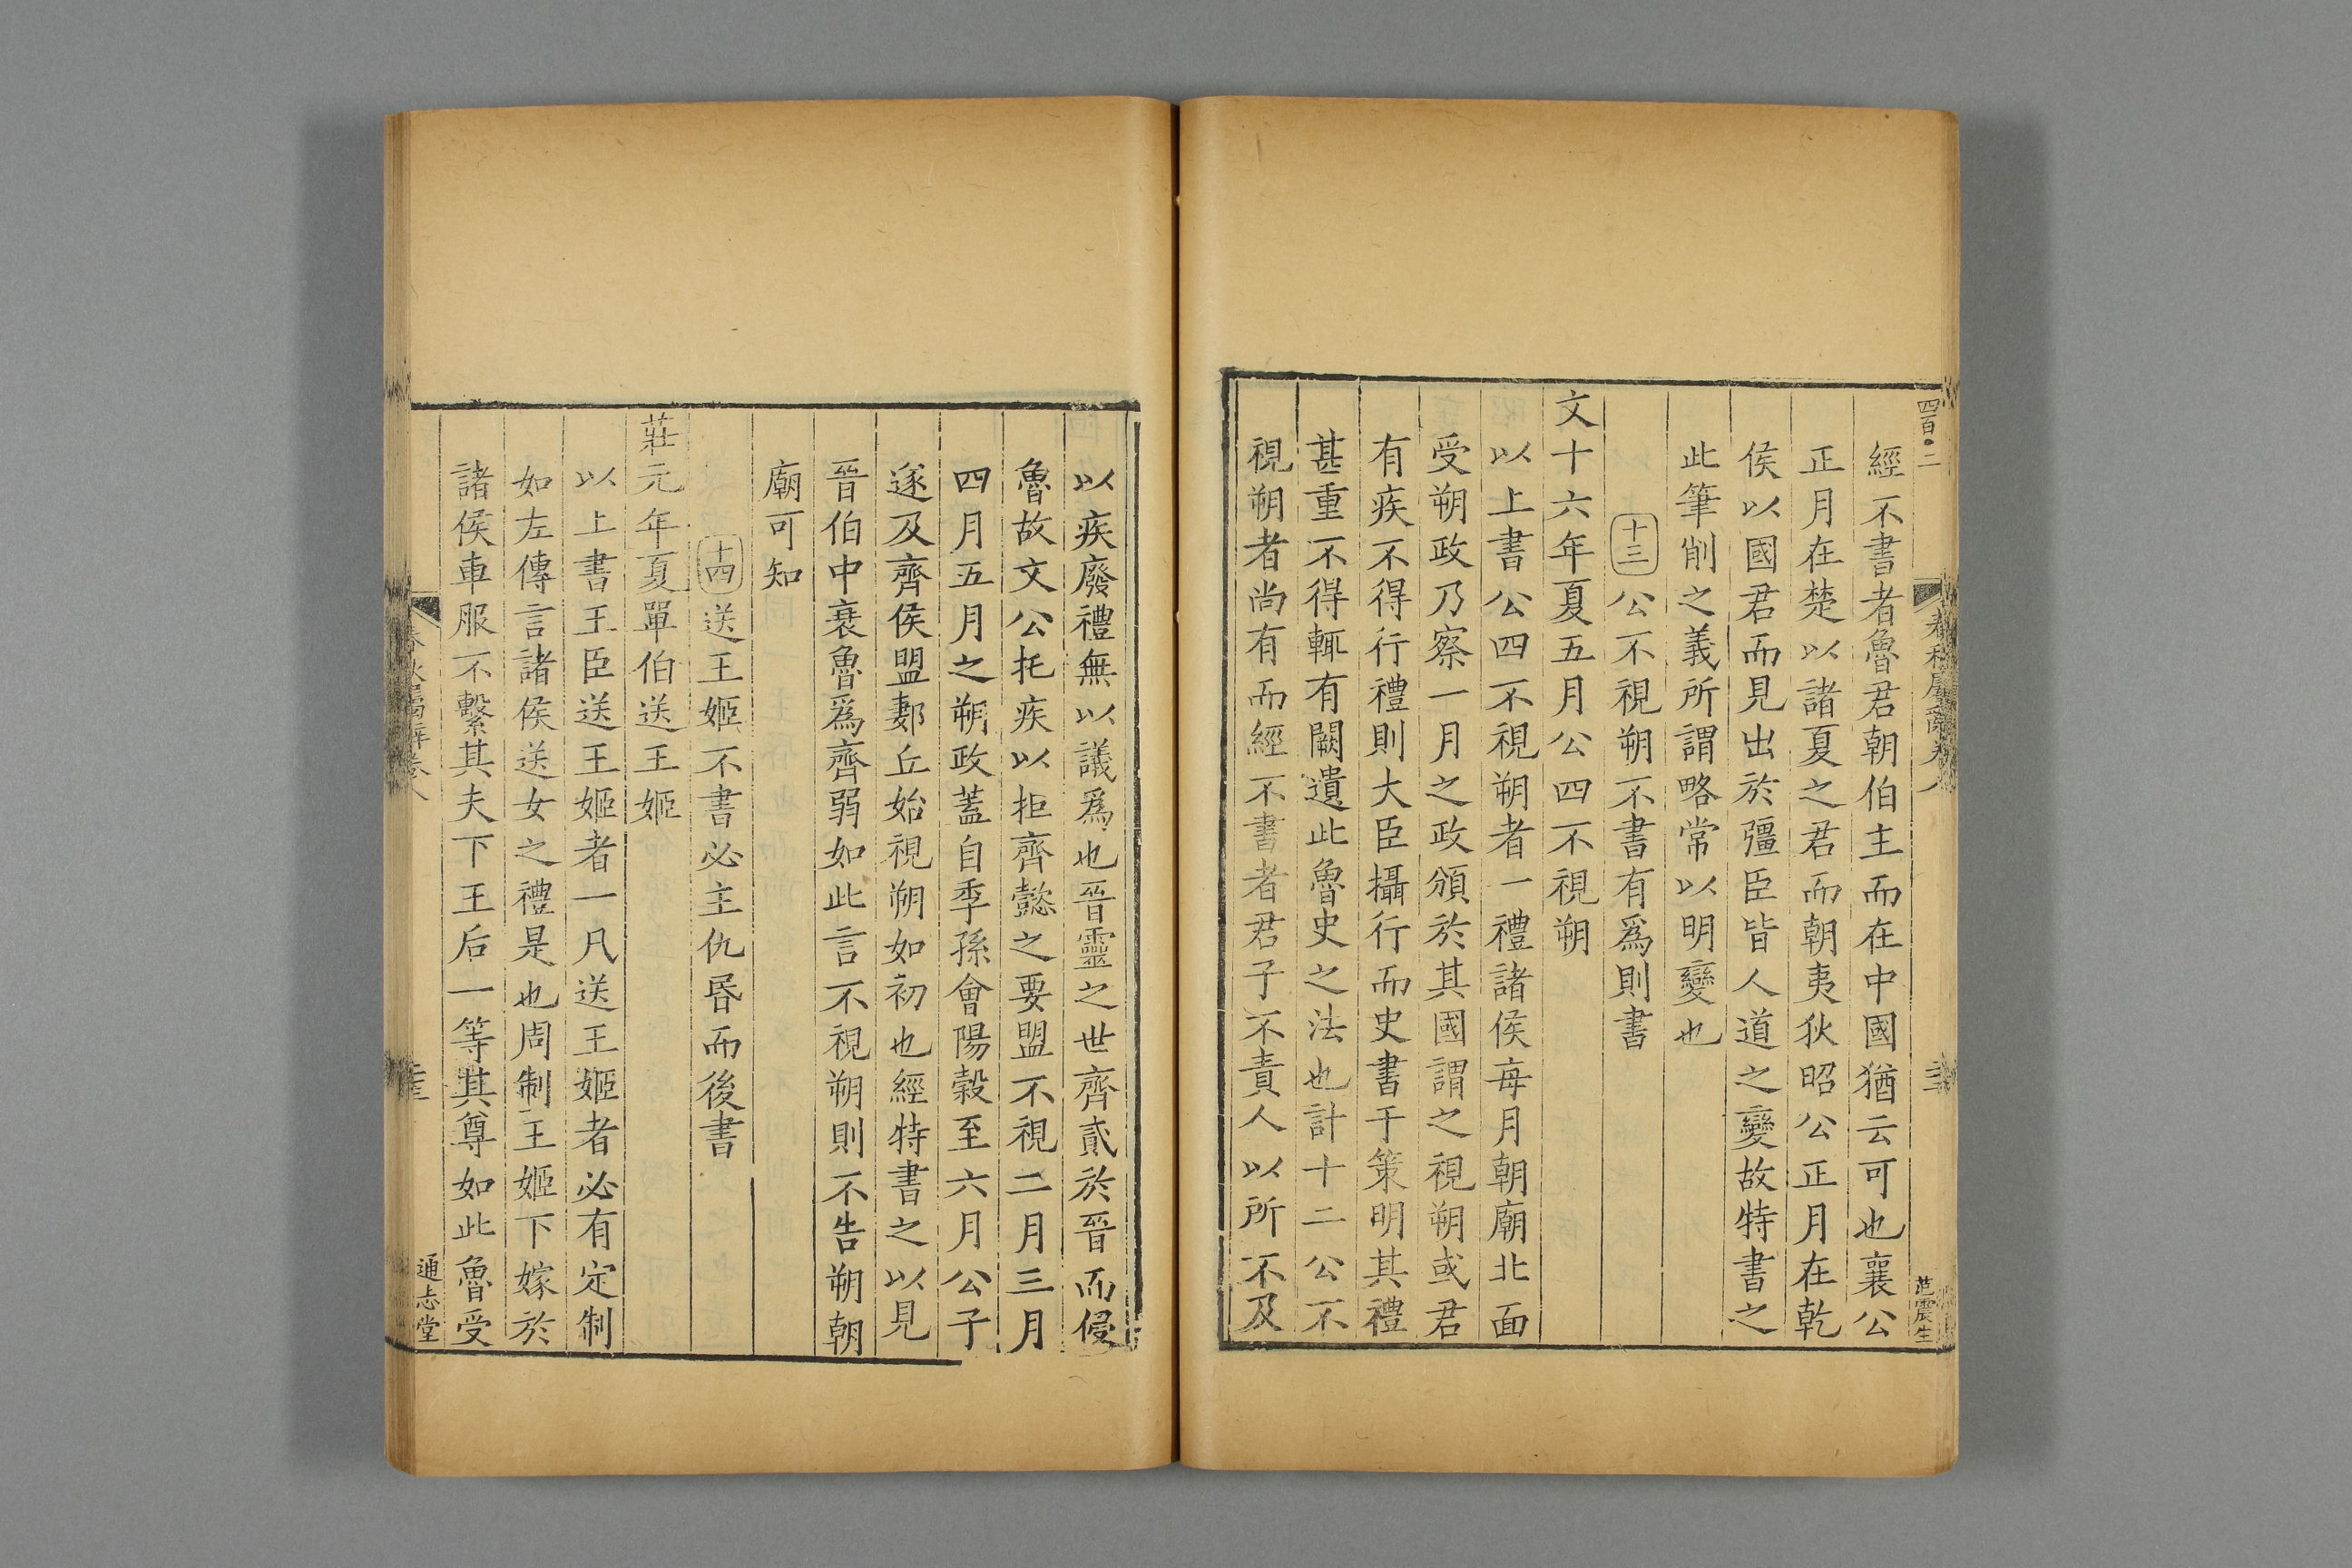 四百●二
春秋屬辭卷八
范震生
經不書者魯君朝伯主而在中國猶云可也襄公
正月在楚以諸夏之君而朝夷狄昭公正月在乾
侯以國君而見出於彊臣皆人道之變故特書之
此筆削之義所謂略常以明變也
十三公不視朔不書有爲則書
文十六年夏五月公四不視朔
以上書公四不視朔者一禮諸侯每月朝廟北面
受朔政乃察一月之政頒於其國謂之視朔或君
有疾不得行禮則大臣攝行而史書于策明其禮
甚重不得輒有闕遺此魯史之法也計十二公不
視朔者尚有而經不書者君子不責人以所不及
以疾廢禮無以議爲也晉靈之世齊貳於晉而侵
魯故文公托疾以拒齊懿之要盟不視二月三月
四月五月之朔政蓋自季孫會陽穀至六月公子
遂及齊侯盟郪丘始視朔如初也經特書之以見
晉伯中衰魯爲齊弱如此言不視朔則不告朔朝
廟可知
十四送王姬不書必主仇昏而後書
莊元年夏單伯送王姬
以上書王臣送王姬者一凡送王姬者必有定制
如左傳言諸侯送女之禮是也周制王姬下嫁於
諸侯車服不繫其夫下王后一等其尊如此魯受
春秋屬辭卷八
通志堂